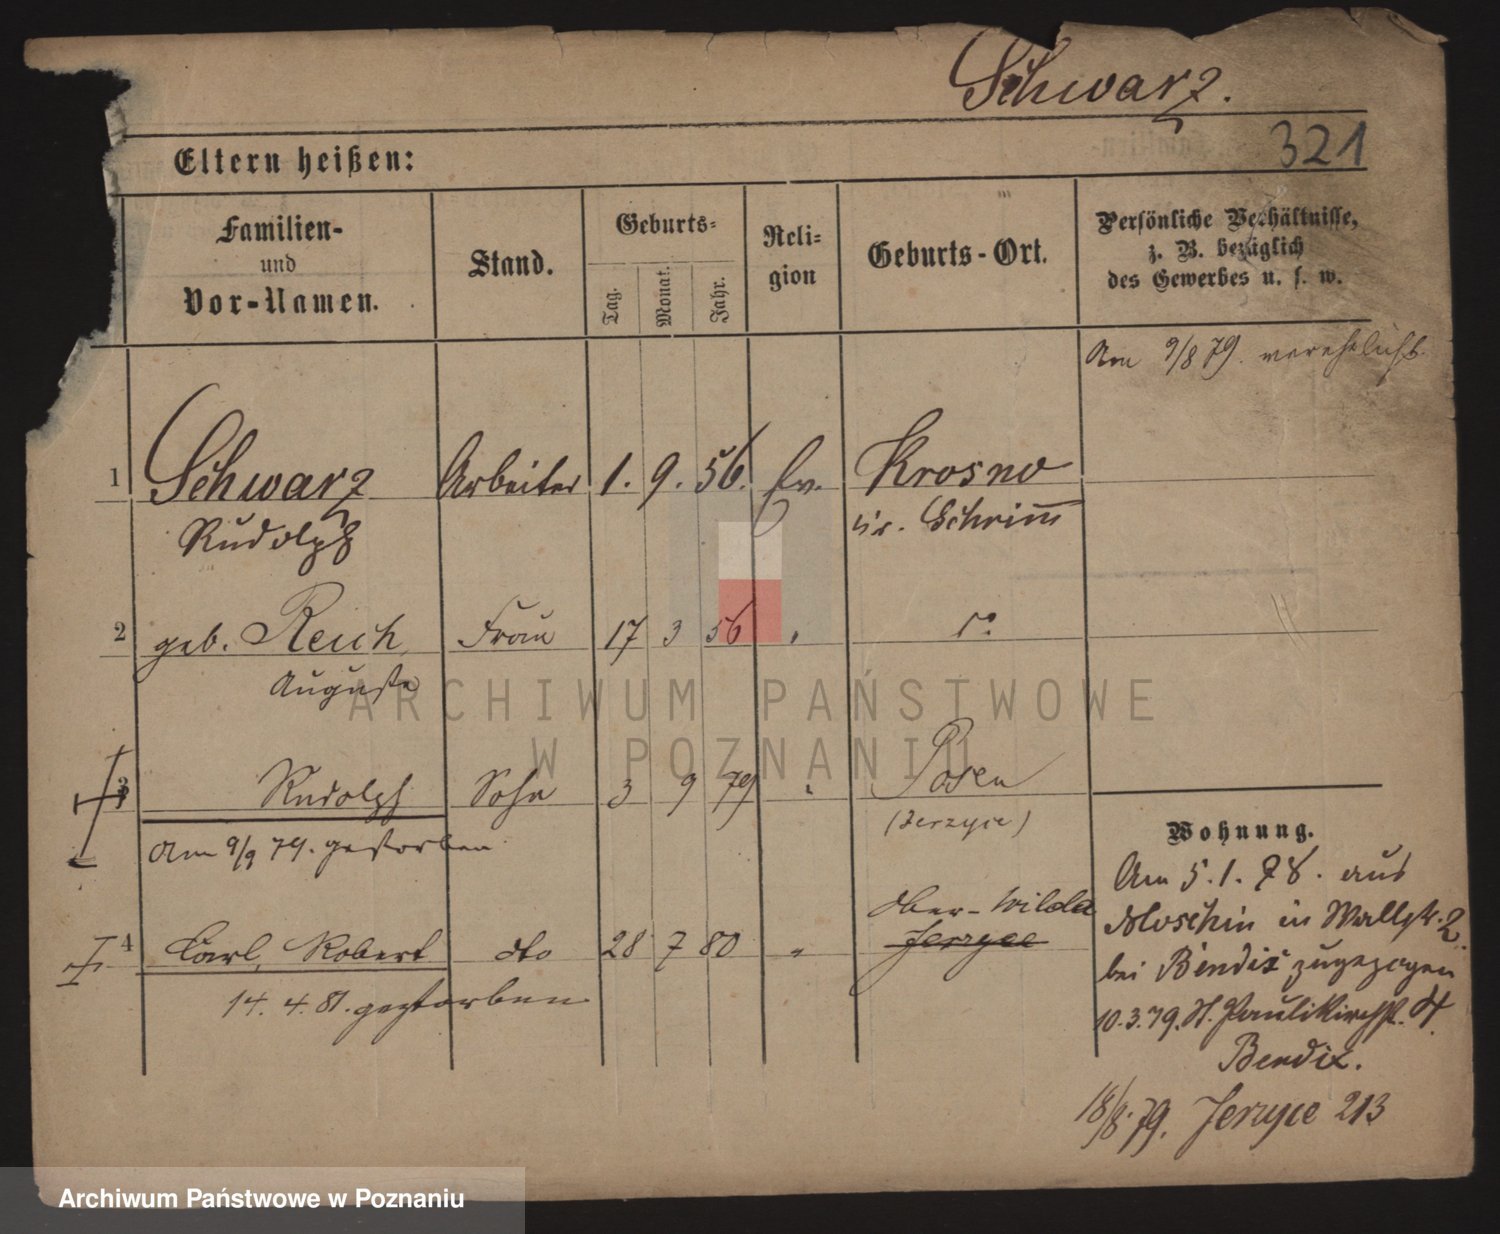 Schwarz.
321
Eltern heißen:
Familien-
und
Vor-Namen.
Stand.
Geburts-
Tag.
Monat.
Jahr.
Reli-
gion
Geburts-Ort.
Persönliche Verhältnisse,
z. B. bezüglich
des Gewerbes u. s. w.
Am 9/8 79. verehelicht.
1 Schwarz Arbeiter 1. 9. 56. Ev. Krosno
Rudolph Schrimm
2 geb. Reich Frau 17 3 56 "
Auguste
3 Rudolph Sohn 3 9 79 " Posen
(Jerzyce)
Am 9/9 79. gestorben
4 Carl Robert dto 28 7 80 " Ober-Wilda
Jerzyce
14. 4. 81. gestorben
Wohnung.
Am 5. 1. 78. aus
Moschin in Wallstr. 2.
bei Bendix zugezogen
10.3.79. St. Paulikirchstr. 4.
Bendix.
18/8. 79. Jerzyce 213
ARCHIWUM PAŃSTWOWE
W POZNANIU
Archiwum Państwowe w Poznaniu